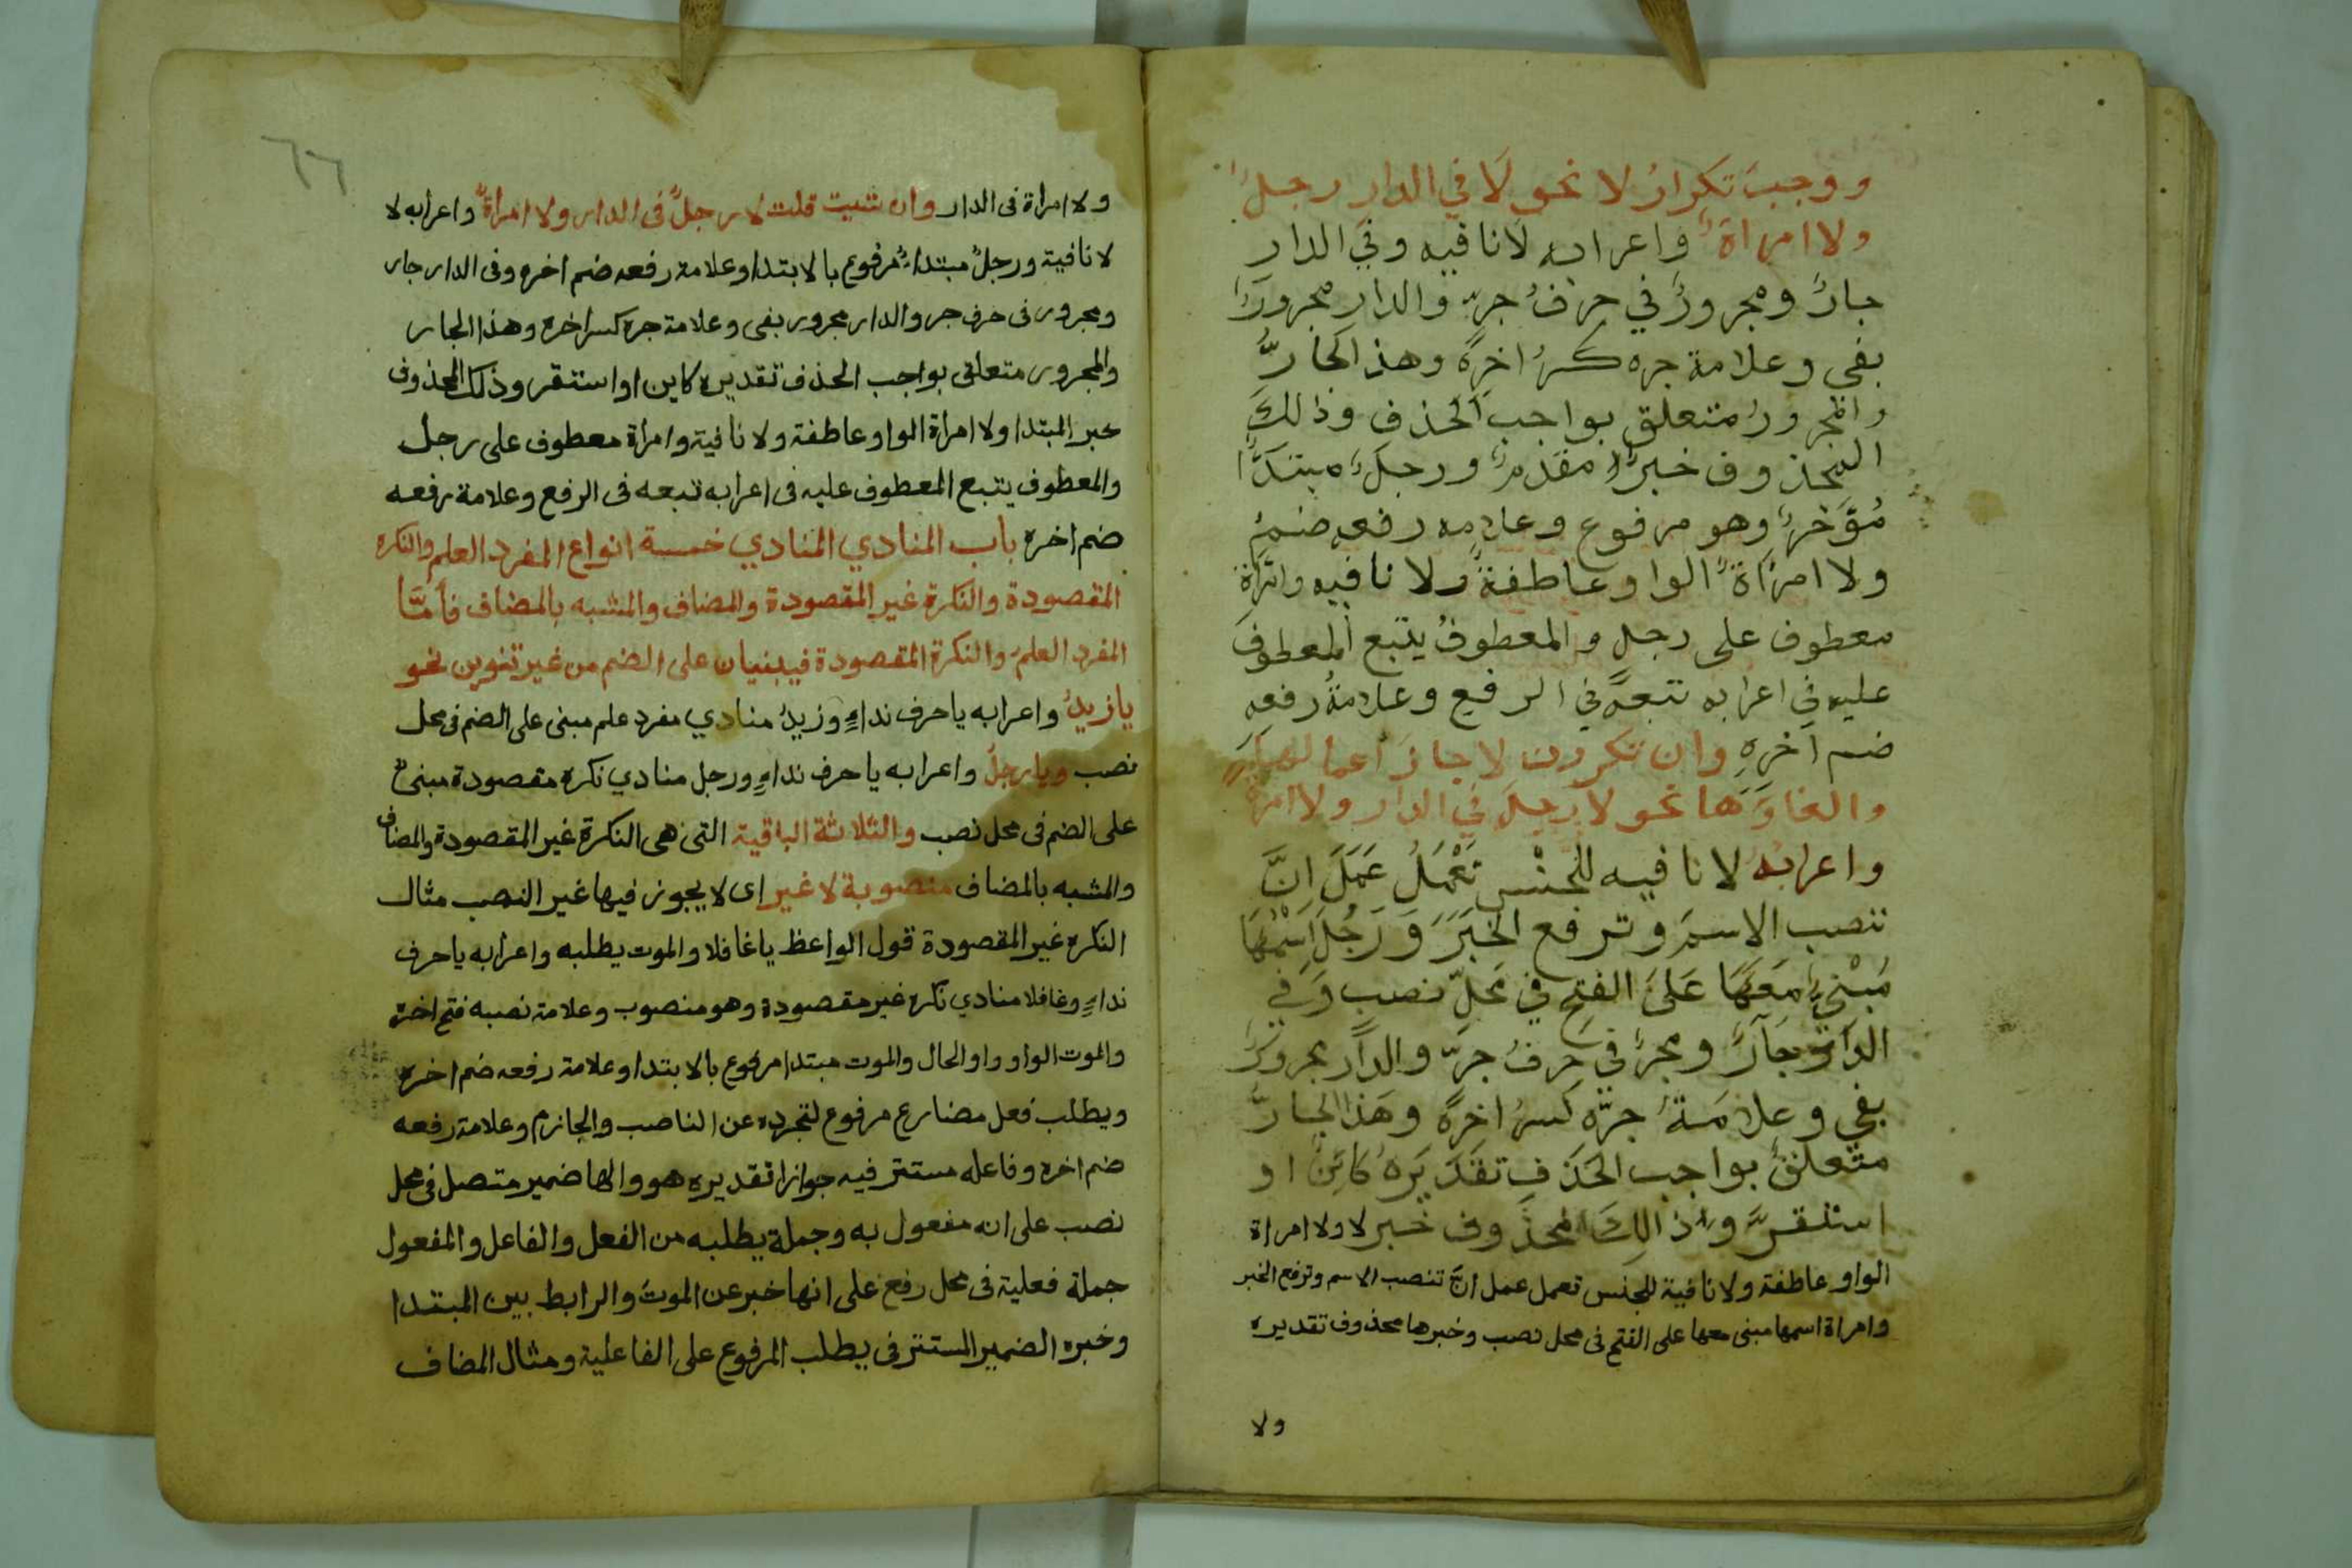 ووجب تكرار لا نحو لا في الدار رجلٌ
ولا امراة واعرابه لا نافيه وفي الدار
جارٌ ومجرورٌ في حرف جرٍ والدار مجرورٌ
بفي وعلامة جره كسرُ اخرهِ وهذا الجارُّ
والمجرورُ متعلق بواجب الحذف وذالكَ
المحذوف خبرٌ مقدمٌ ورجلٌ مبتدأ
مُؤَخرٌ وهو مرفوع وعلامه رفعه ضمُ
ولا امراةٌ الواو عاطفةٌ ولا نافيه وامراة
معطوف على رجل والمعطوفُ يتبع المعطوف
عليه في اعرابه تبعهُ في الرفع وعلامةُ رفعه
ضم اخرهِ وان تكررت لا جاز اعمالها
والغاوها نحو لا رجلَ في الدار ولا امراة
واعرابهُ لا نافيه للجنْس تَعْمَلُ عَمَلَ اِنَّ
تنصب الاسمَ وترفع الخبَرَ وَرَجُلَ اسْمُهَا
مَبْنيٌ مَعَهَا عَلىَ الفتح في محَلّ نصب وَفي
الدار جارٌ ومجرٌ في حرفُ جرٍّ والدار مجرورٌ
بفي وعلامَةُ جرّه كسرُ اخرهِ وهَذا الجارُّ
متعلقٌ بواجب الحَذفِ تقدَيرَهُ كائنٌ او
استقرَّ وذالِكَ المحذوف خبر لا ولا امراة
الواو عاطفة ولا نافية للجنس تعمل عمل انَّ تنصب الاسم وترفع الخبر
وامراة اسمها مبنى معها على الفتح فى محل نصب وخبرها محذوف تقديره
ولا
٦٦
ولا امراة فى الدار وان شيت قلت لا رجلٌ فى الدار ولا امراةٌ واعرابه لا
لا نافية ورجلٌ مبتداءٌ مرفوع بالابتدا وعلامة رفعه ضم اخره وفى الدار جار
ومجرور فى حرف جر والدار مجرور بفى وعلامة جره كسر اخره وهذا الجار
والمجرور متعلق بواجب الحذف تقديره كاين او استقر وذلك المحذوف
خبر المبتدا ولا امراة الواو عاطفة ولا نافية وامراة معطوف على رجل
والمعطوف يتبع المعطوف عليه فى اعرابه تبعه فى الرفع وعلامة رفعه
ضم اخره باب المنادي المنادي خمسة انواع المفرد العلم والنكره
المقصودة والنكرة غير المقصودة والمضاف والمشبه بالمضاف فأمّا
المفرد العلم والنكرة المقصودة فيبنيان على الضم من غير تنوين نحو
يا زيدُ واعرابه يا حرف نداءٍ وزيدُ منادي مفرد علم مبنى على الضم فى محل
نصب ويا رجلُ واعرابه يا حرف نداءٍ ورجل منادي نكره مقصودة مبنىٌ
على الضم فى محل نصب والثلاثة الباقية التى هى النكرة غير المقصودة والمضاف
والمشبه بالمضاف منصوبة لا غير اى لا يجوز فيها غير النصب مثال
النكره غير المقصودة قول الواعظ يا غافلا والموت يطلبه واعرابه يا حرف
نداءٍ وغافلا منادي نكره غير مقصودة وهو منصوب وعلامة نصبه فتح اخره
والموت الواو واو الحال والموت مبتدا مرفوع بالابتدا وعلامة رفعه ضم اخره
ويطلب فعل مضارع مرفوع لتجرده عن الناصب والجازم وعلامة رفعه
ضم اخره وفاعله مستتر فيه جوازا تقديره هو والها ضمير متصل فى محل
نصب على انه مفعول به وجملة يطلبه من الفعل والفاعل والمفعول
جملة فعلية فى محل رفع على انها خبر عن الموت والرابط بين المبتدا
وخبره الضمير المستتر فى يطلب المرفوع على الفاعلية ومثال المضاف